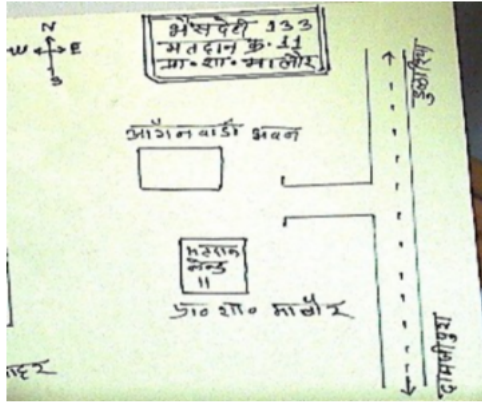 N
W E
S
भैंसदेही 133
मतदान क्र. 11
मा॰ शा॰ मालौर
आँगनवाडी भवन
मतदान
केन्द्र
11
प्रा॰ शा॰ मालौर
दामजीपुरा